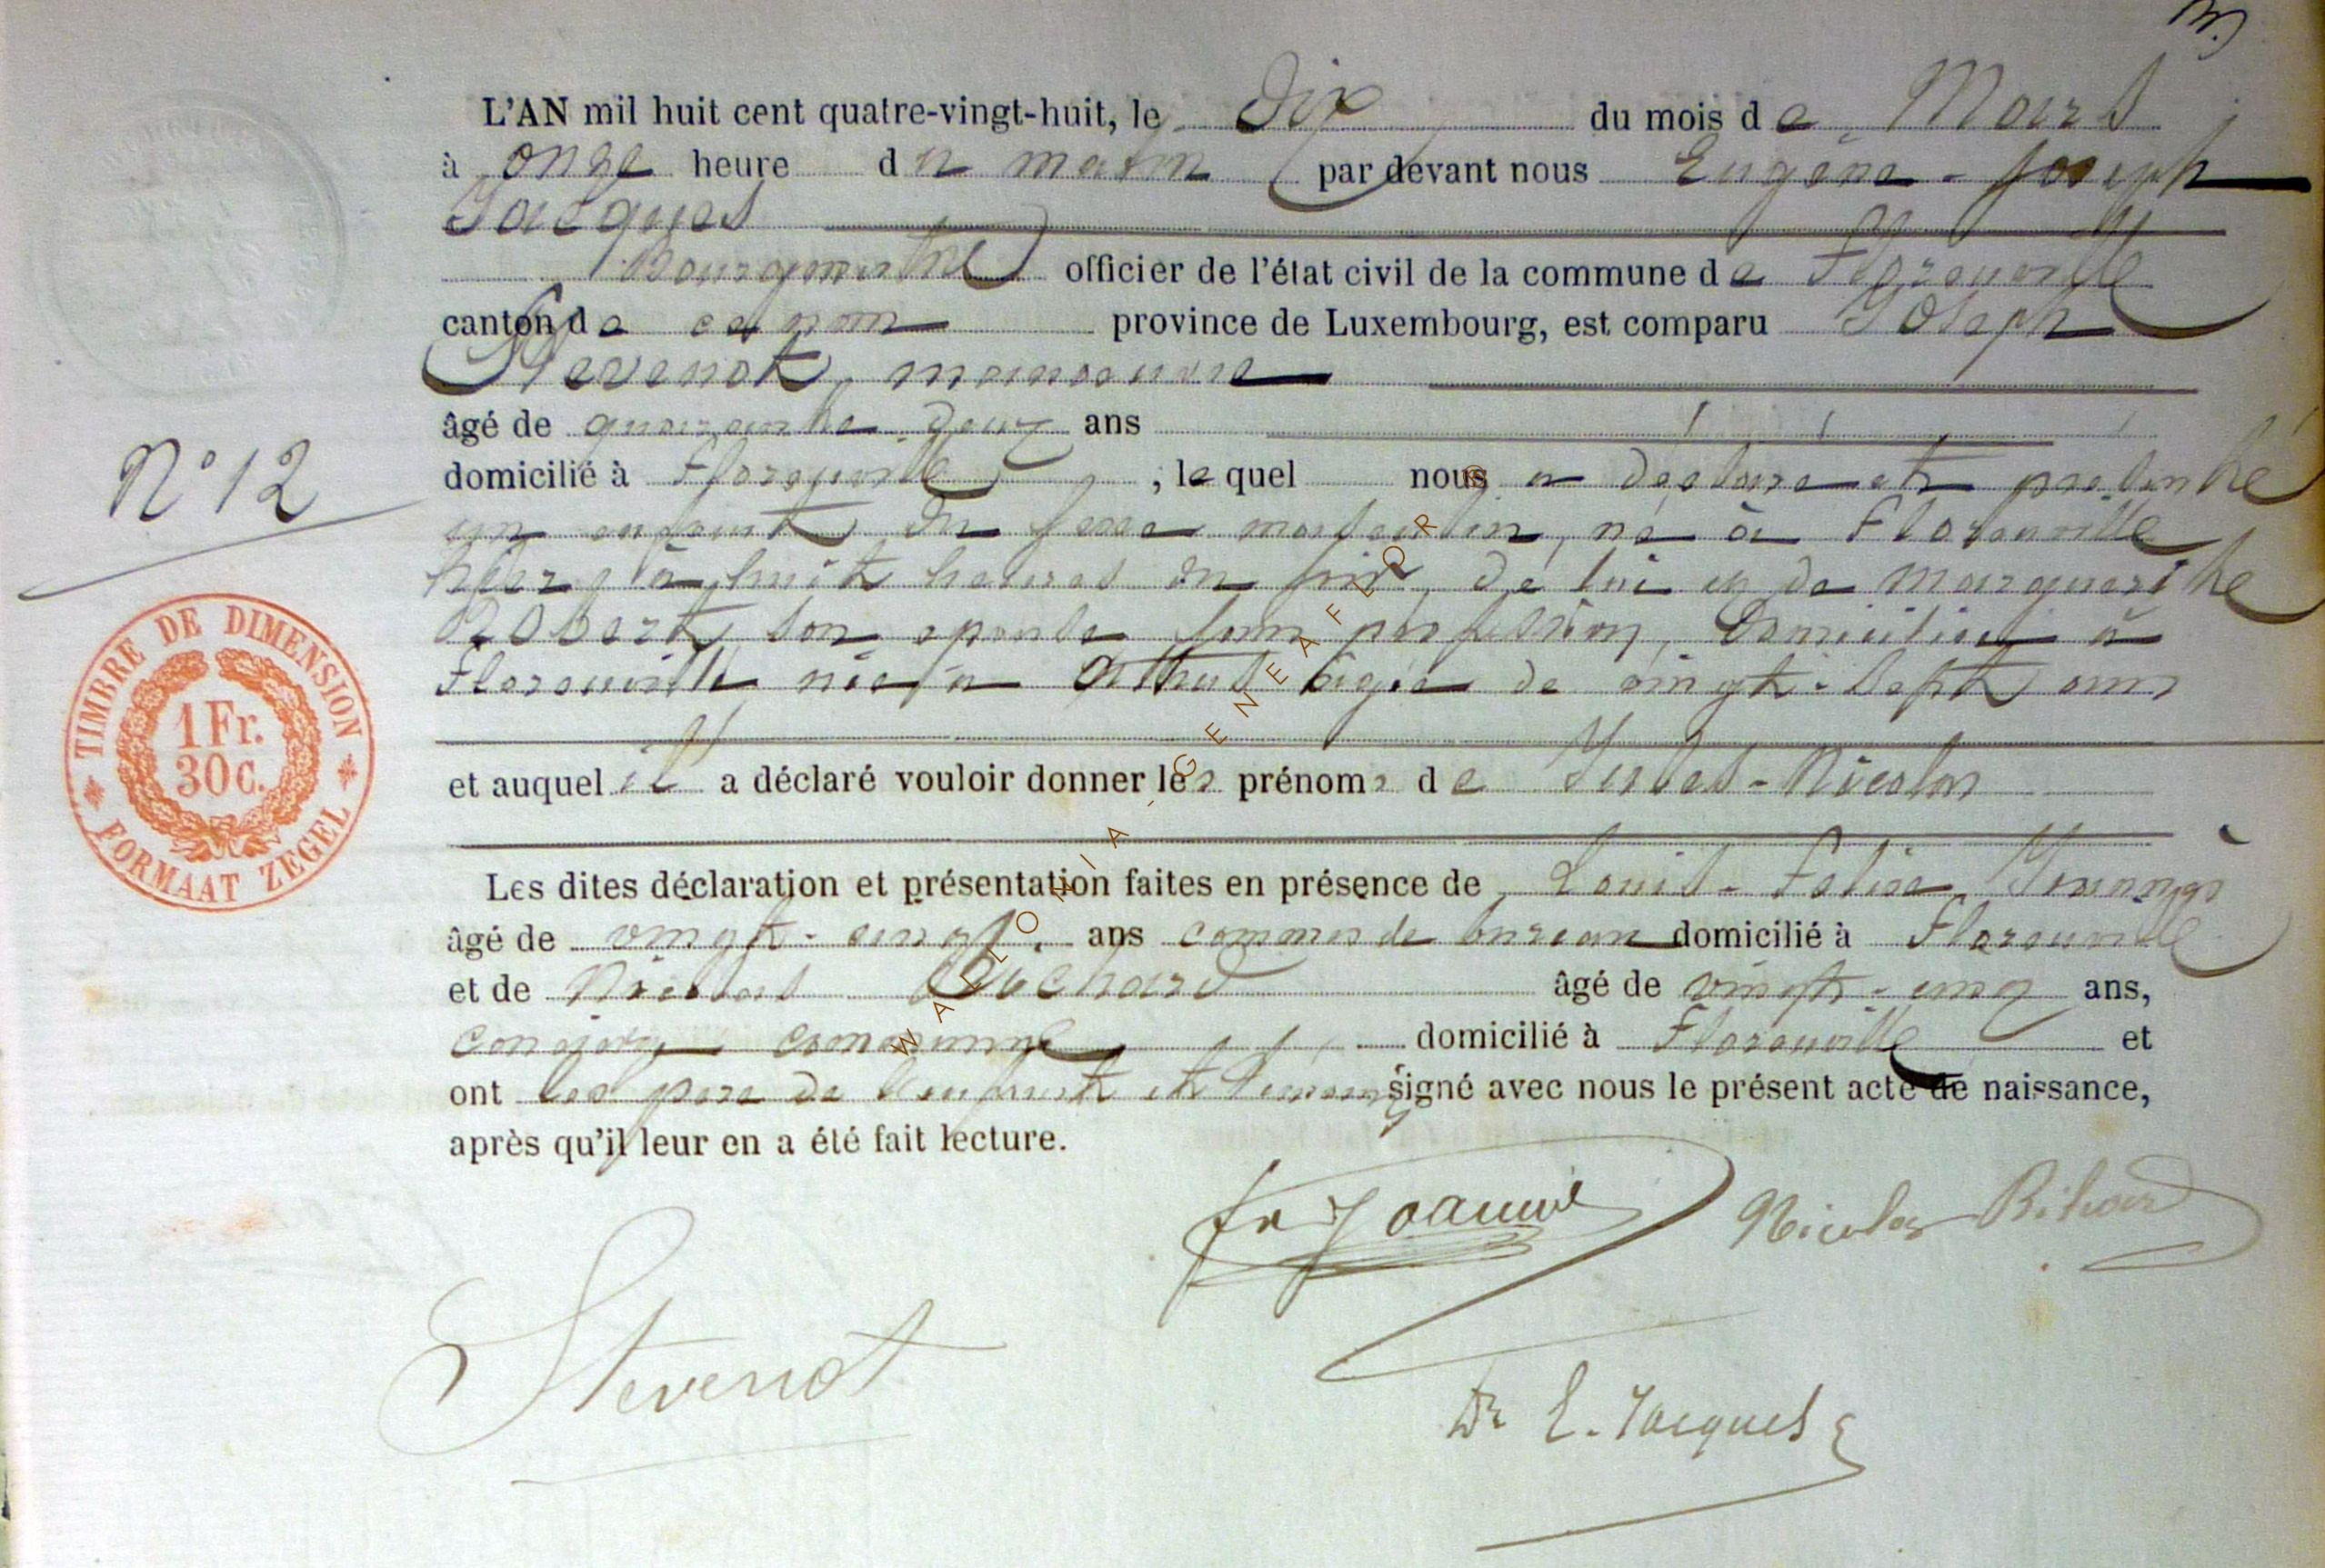 L'AN mil huit cent quatre-vingt-huit, le Dix du mois de Mars
à onze heure du matin par devant nous Eugène-Joseph
Jacques
Bourgmestre officier de l'état civil de la commune de Florenville
canton de ce nom province de Luxembourg, est comparu Joseph
Stevenot, manoeuvre
âgé de quarante-deux ans
domicilié à Florenville, lequel nous a déclaré et présenté
un enfant du sexe masculin, né à Florenville
hier à huit heures du soir, de lui et de Marguerite
Robert son épouse sans profession, domiciliée à
Florenville née à Athus âgée de vingt-sept ans
et auquel il a déclaré vouloir donner les prénoms de Jules-Nicolas
Les dites déclaration et présentation faites en présence de Louis-Félix
âgé de vingt-cinq ans commis de bureau domicilié à Florenville
et de Nicolas Richard âgé de vingt-cinq ans,
domicilié à Florenville et
ont les père de l'enfant et témoins signé avec nous le présent acte de naissance,
après qu'il leur en a été fait lecture.
Nicolas Richard
Stevenot
Dr E. Jacques
N° 12
TIMBRE DE DIMENSION
1 Fr.
30 c.
FORMAAT ZEGEL
WALLONIA - GENEAFLOR